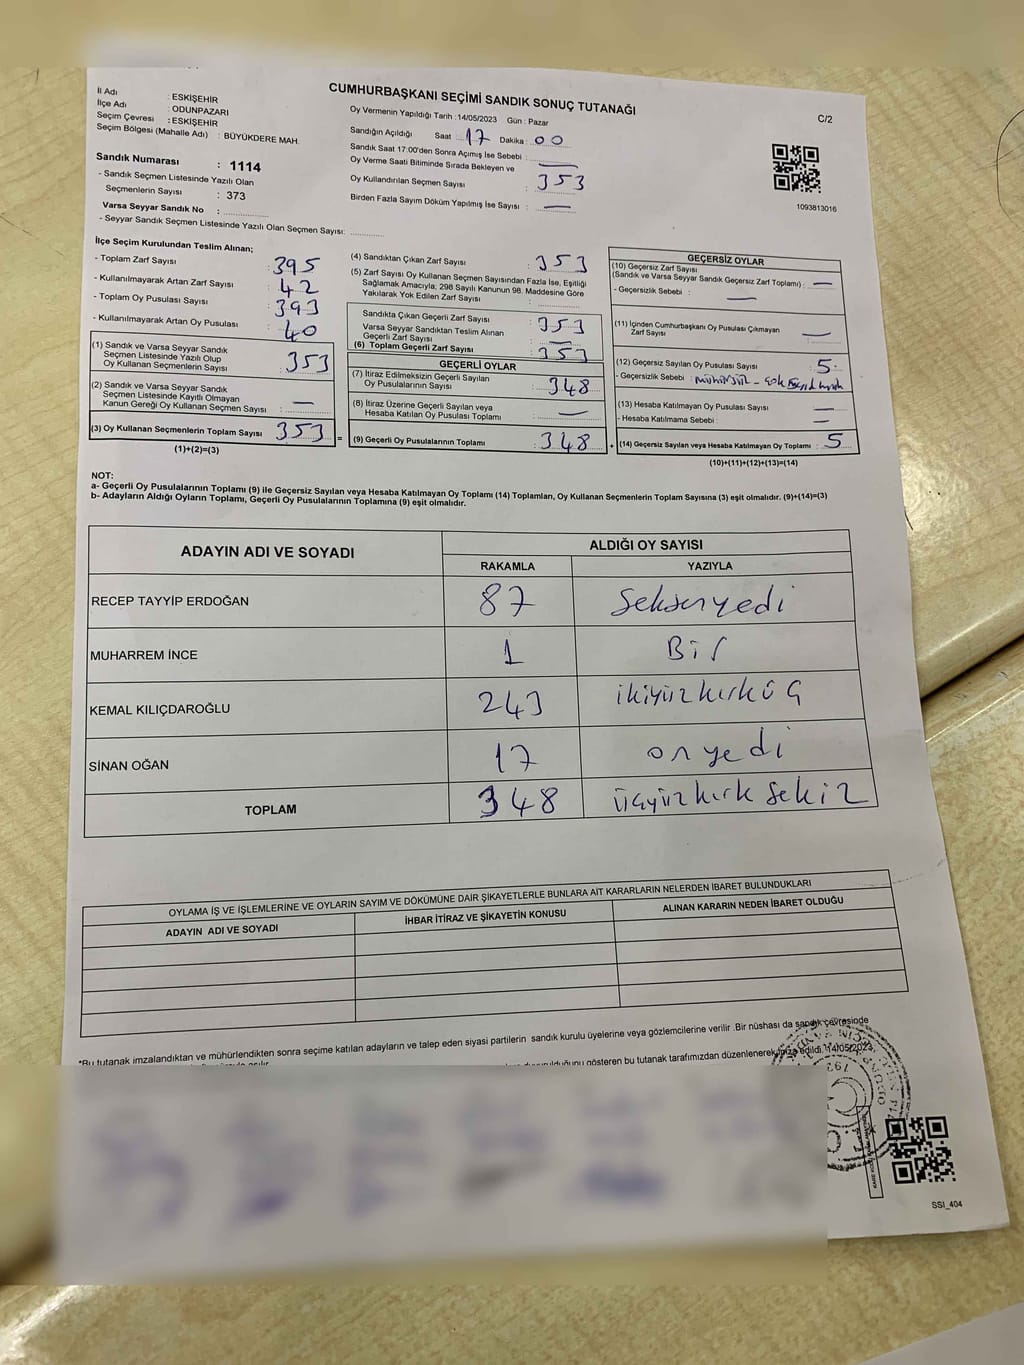 CUMHURBAŞKANI SEÇİMİ SANDIK SONUÇ TUTANAĞI
C/2
İl Adı : ESKİŞEHİR
İlçe Adı : ODUNPAZARI
Seçim Çevresi : ESKİŞEHİR
Seçim Bölgesi (Mahalle Adı) : BÜYÜKDERE MAH.
Sandık Numarası : 1114
- Sandık Seçmen Listesinde Yazılı Olan
Seçmenlerin Sayısı : 373
Varsa Seyyar Sandık No :
- Seyyar Sandık Seçmen Listesinde Yazılı Olan Seçmen Sayısı:
Oy Vermenin Yapıldığı Tarih :14/05/2023 Gün : Pazar
Sandığın Açıldığı Saat : 17 Dakika : 00
Sandık Saat 17:00'den Sonra Açımış İse Sebebi :
Oy Verme Saati Bitiminde Sırada Bekleyen ve —
Oy Kullandırılan Seçmen Sayısı : 353
Birden Fazla Sayım Döküm Yapılmış İse Sayısı : —
1093813016
İlçe Seçim Kurulundan Teslim Alınan;
- Toplam Zarf Sayısı : 395
- Kullanılmayarak Artan Zarf Sayısı : 42
- Toplam Oy Pusulası Sayısı : 393
- Kullanılmayarak Artan Oy Pusulası : 40
(1) Sandık ve Varsa Seyyar Sandık
Seçmen Listesinde Yazılı Olup
Oy Kullanan Seçmenlerin Sayısı : 353
(2) Sandık ve Varsa Seyyar Sandık
Seçmen Listesinde Kayıtlı Olmayan
Kanun Gereği Oy Kullanan Seçmen Sayısı : —
(3) Oy Kullanan Seçmenlerin Toplam Sayısı : 353
(1)+(2)=(3)
(4) Sandıktan Çıkan Zarf Sayısı : 353
(5) Zarf Sayısı Oy Kullanan Seçmen Sayısından Fazla İse, Eşitliği
Sağlamak Amacıyla; 298 Sayılı Kanunun 98. Maddesine Göre
Yakılarak Yok Edilen Zarf Sayısı :
Sandıkta Çıkan Geçerli Zarf Sayısı : 353
Varsa Seyyar Sandıktan Teslim Alınan
Geçerli Zarf Sayısı : —
(6) Toplam Geçerli Zarf Sayısı : 353
GEÇERLİ OYLAR
(7) İtiraz Edilmeksizin Geçerli Sayılan
Oy Pusulalarının Sayısı : 348
(8) İtiraz Üzerine Geçerli Sayılan veya
Hesaba Katılan Oy Pusulası Toplamı : —
= (9) Geçerli Oy Pusulalarının Toplamı : 348
GEÇERSİZ OYLAR
(10) Geçersiz Zarf Sayısı
(Sandık ve Varsa Seyyar Sandık Geçersiz Zarf Toplamı) : —
- Geçersizlik Sebebi : —
(11) İçinden Cumhurbaşkanı Oy Pusulası Çıkmayan
Zarf Sayısı : —
(12) Geçersiz Sayılan Oy Pusulası Sayısı : 5
- Geçersizlik Sebebi :
(13) Hesaba Katılmayan Oy Pusulası Sayısı : —
- Hesaba Katılmama Sebebi : —
+ (14) Geçersiz Sayılan veya Hesaba Katılmayan Oy Toplamı : 5
(10)+(11)+(12)+(13)=(14)
NOT:
a- Geçerli Oy Pusulalarının Toplamı (9) ile Geçersiz Sayılan veya Hesaba Katılmayan Oy Toplamı (14) Toplamları, Oy Kullanan Seçmenlerin Toplam Sayısına (3) eşit olmalıdır. (9)+(14)=(3)
b- Adayların Aldığı Oyların Toplamı, Geçerli Oy Pusulalarının Toplamına (9) eşit olmalıdır.
ADAYIN ADI VE SOYADI ALDIĞI OY SAYISI
RAKAMLA YAZIYLA
RECEP TAYYİP ERDOĞAN 87 Seksenyedi
MUHARREM İNCE 1 Bir
KEMAL KILIÇDAROĞLU 243 ikiyüzkırküç
SİNAN OĞAN 17 onyedi
TOPLAM 348 üçyüzkırksekiz
OYLAMA İŞ VE İŞLEMLERİNE VE OYLARIN SAYIM VE DÖKÜMÜNE DAİR ŞİKAYETLERLE BUNLARA AİT KARARLARIN NELERDEN İBARET BULUNDUKLARI
ADAYIN ADI VE SOYADI İHBAR İTİRAZ VE ŞİKAYETİN KONUSU ALINAN KARARIN NEDEN İBARET OLDUĞU
*Bu tutanak imzalandıktan ve mühürlendikten sonra seçime katılan adayların ve talep eden siyasi partilerin sandık kurulu üyelerine veya gözlemcilerine verilir .Bir nüshası da sandık çevresinde
gösteren bu tutanak tarafımızdan düzenlenerek imza edildi. 14/05/2023
SSI_404